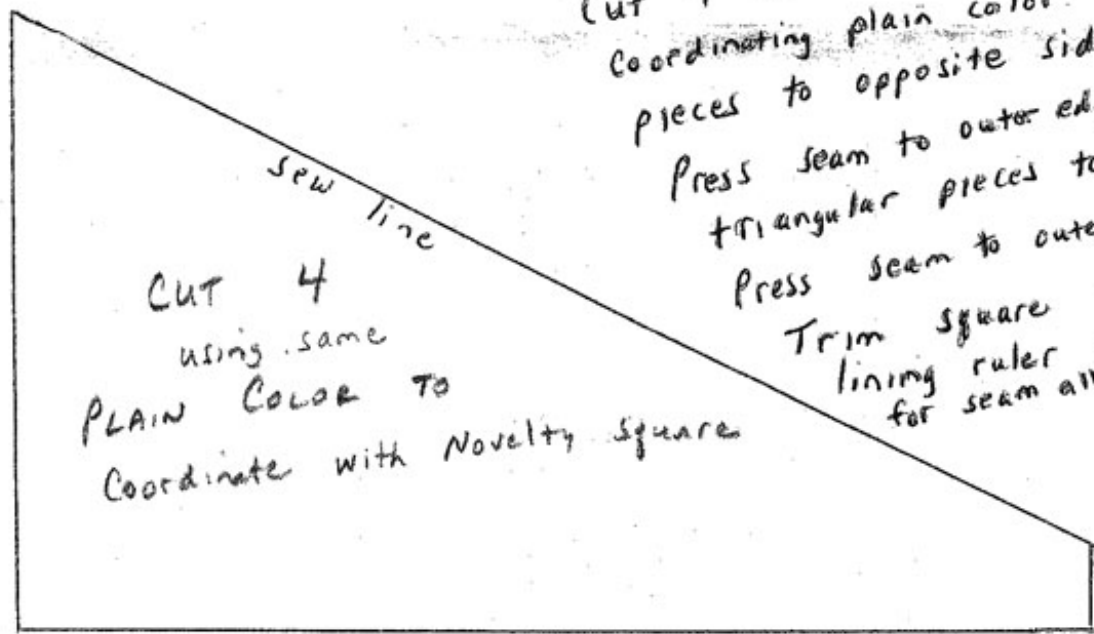 Cut
Coordinating plain color
pieces to opposite sid
Press seam to outer ed
triangular pieces to
Press seam to oute
Trim square
lining ruler
for seam all
sew line
CUT 4
using same
PLAIN COLOR TO
Coordinate with Novelty square